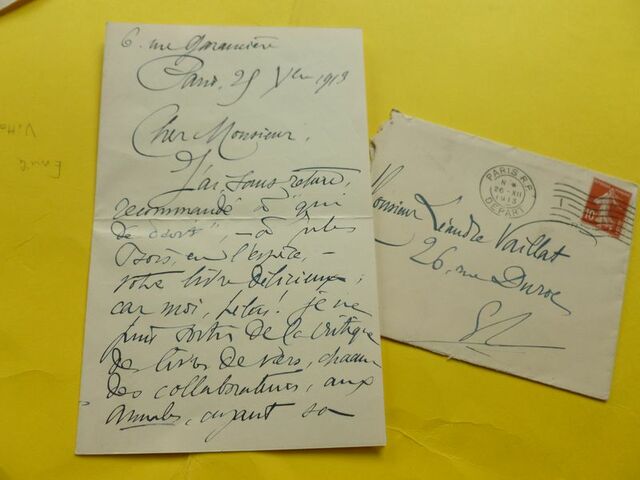 6. rue Garancière
Paris, 25 Xbre 1913
Cher Monsieur,
J'ai, sans retard,
recommandé à "qui
de droit", – à Jules
Bois, en l'espèce, –
votre livre délicieux;
car moi, hélas! je ne
puis sortir de la critique
des livres de vers, chacun
des collaborateurs, aux
Annales, ayant sa
PARIS R.P.
26-XII
1913
DEPART
10
Monsieur Léandre Vaillat
26, rue Duroc